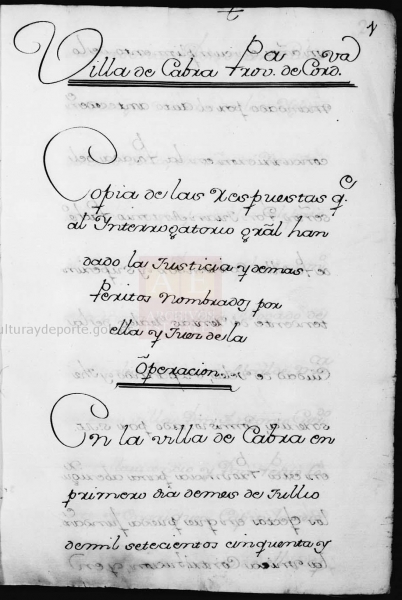 Villa de Cabra Prov.ª de Cord.va
Copia de las Respuestas q.e
al Ynterrogatorio grãl han
dado la Justicia y demas
Peritos Nombrados por
ella y Juez de la
Operacion.
En la villa de Cabra en
primero dia demes de Jullio
demil setecientos cinquenta y